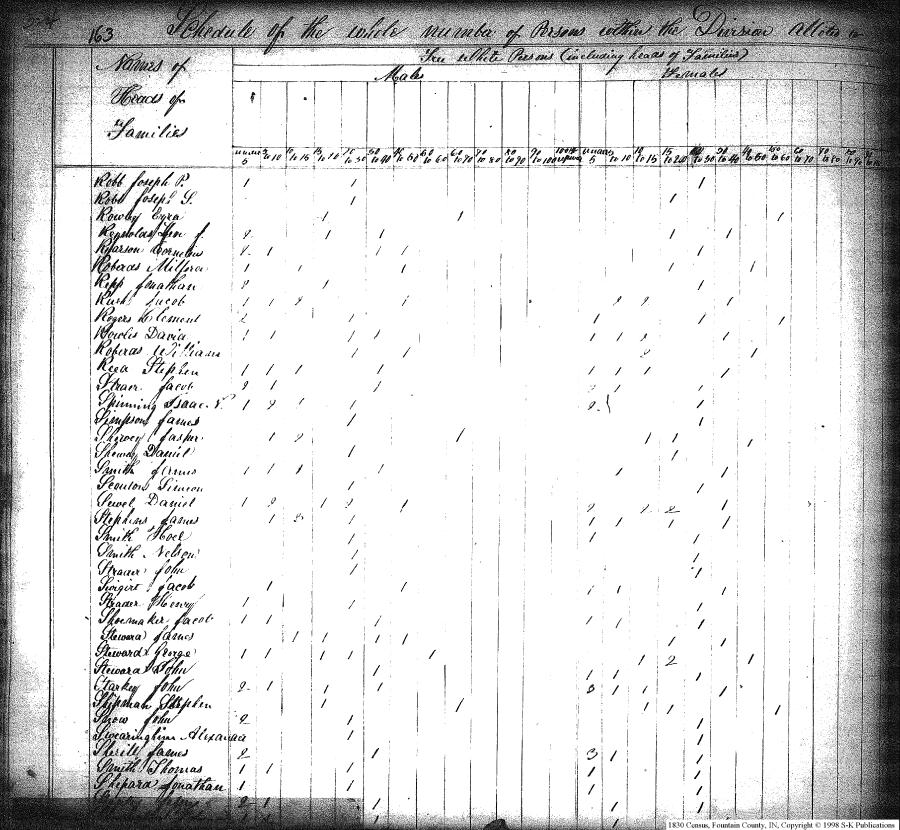 163 Schedule of the whole number of Persons within the Division allotted
Free White Persons (including heads of Families)
Names of Heads of Families
Males Females
under 5 5 to 10 10 to 15 15 to 20 20 to 30 30 to 40 40 to 50 50 to 60 60 to 70 70 to 80 80 to 90 90 to 100 under 5 5 to 10 10 to 15 15 to 20 20 to 30 30 to 40 40 to 50 50 to 60 60 to 70 70 to 80 80 to 90
Robb Joseph P. 1 1 1
Robb Joseph S. 1 1 1
Rowley Ezra 1 1 1
Reynolds 2 1 1 1 1
Rearson Cornelius 2 1 1 1 1
Roberds Milford 1 1 1 1 1
Repp Jonathan 2 1 1
Rush Jacob 1 1 2 1 2 2 1
Rogers Clement 2 1 1 1 1
Rowles David 1 1 1 1 1 1 2 1
Roberds William 1 1 2 1
Reed Stephen 1 1 1 1 1 1 1 1
Strader Jacob 2 1 1 2 1 1
Spinning Isaac N. 1 2 1 1 2 1
Simpson James 1 1
Shewey Jasper 1 2 1 1 1 1
Shewey Daniel 1 1
Smith James 1 1 1 1 1 1
Scouton Simeon 1 1
Sewel Daniel 1 2 1 2 1 2 1 2 1
Stephens James 1 3 1 1 1 1 1
Smith Noel 1 1 1
Smith Nelson 1 1
Strader John 1 1
Swigirt Jacob 1 1 1 1 1
Strader Henry 1 1 1
Shoemaker Jacob 1 1 1 1 1 1
Steward James 1 1 1 1 1 1
Steward George 1 1 1 1 1 1 1 2 1
Steward John 1 1 1 1
Starkey John 2 1 1 1 3 1 1 1 1
Shipman Stephen 1 1 1 1 1
Snow John 2 1 1
Swearinghim Alexander 1 1
Sherill James 2 1 3 1 1
Smith Thomas 1 1 1 1 1
Shepard Jonathan 1 1 1 1
1830 Census, Fountain County, IN, Copyright © 1998 S-K Publications